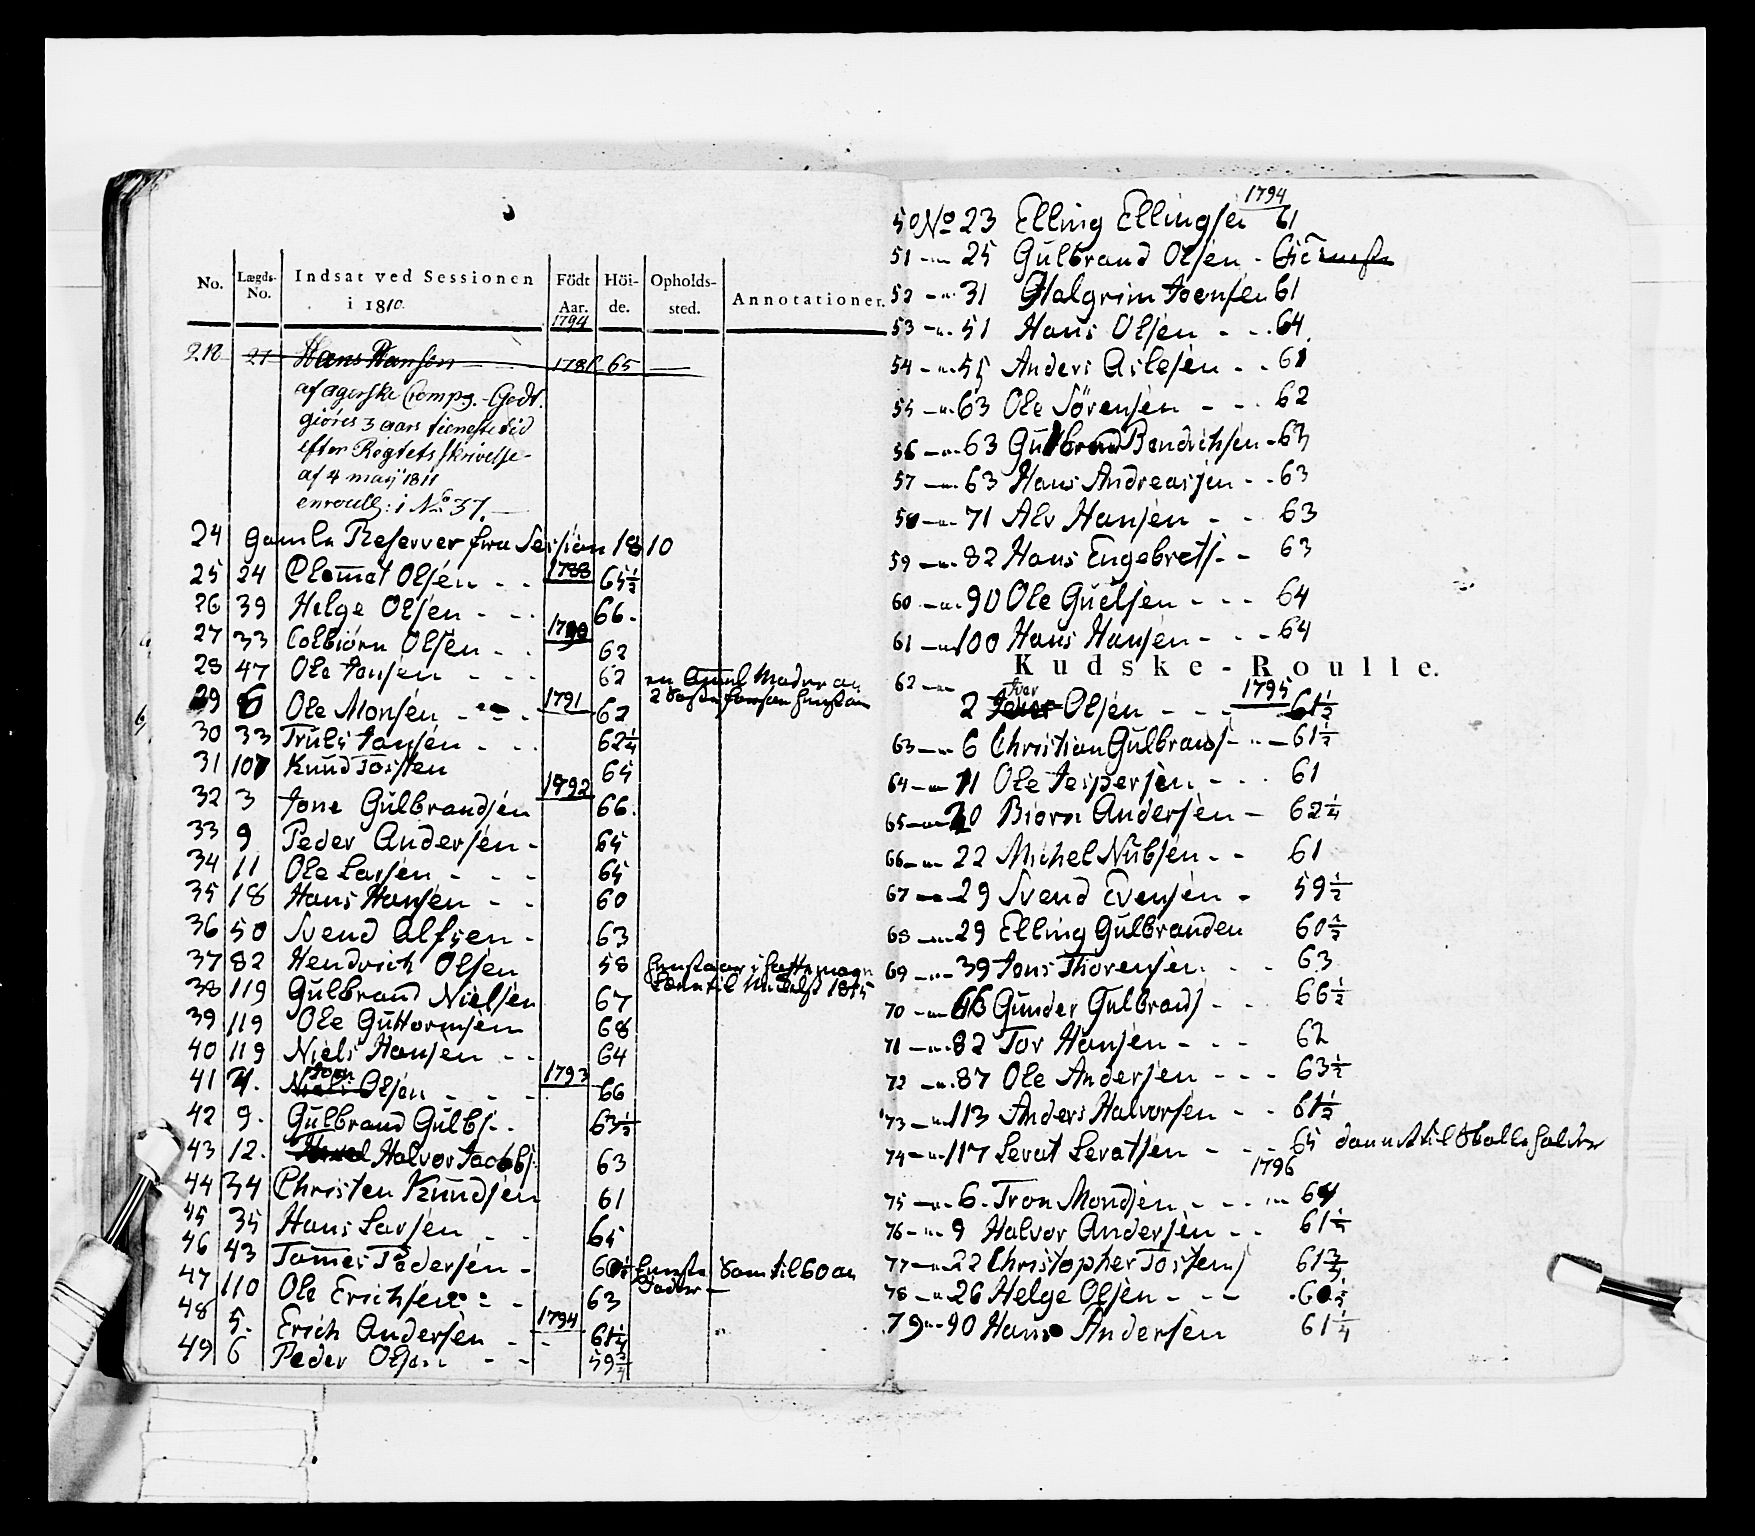 No. Lægds-No. Indsat ved Sessionen i 1810. Födt Aar. Höi-de. Opholds-sted. Annotationer.
1794
21 Hans Hansen 1786 65
af agerske Comp. - Godt
giöres 3 aars tieneste tid
efter Regtets skrivelse
af 4 maÿ 1811
enroull: i No 37.
24 Gamle Reserver fra Session 1810
1788
25 24 Olsen - - 65½
26 39 Helge Olsen - - - 66.
1790
27 33 Colbiörn Olsen - - 62
28 47 Ole Jonsen - - - 62
1791
29 6 Ole Monsen - - 62
30 33 Truls Jonsen - - - 62¼
31 107 Knud Tosten 65
1792
32 3 Jone Gulbrandsen 66.
33 9 Peder Andersen - 65
34 11 Ole Larsen - - - 65
35 18 Hans Hansen - - 60
36 50 Svend Alfsen - 63
37 82 Hendrich Olsen 58
38 119 Gulbrand Nielsen 67
39 119 Ole Guttormsen 68
40 119 Niels Hansen - - 64
1793
41 4. Niels Olsen - - - 66
42 9. Gulbrand Gulbs. - . 63½
43 12. Halvor Jacobs: 63
44 34 Christen Knudsen 61
45 35 Hans Larsen - - 65
46 43 Tomes Pedersen - 60½ som til 60
47 110 Ole Erichsen - - 63
1794
48 5. Erich Andersen - - 61¼
49 6 Peder Olsen - - 59¾
1794
50 No 23 Elling Ellingsen 61
51 - " - 25 Gulbrand Olsen -
52 - " - 31 Halgrim Joensen 61
53 - " - 51 Hans Olsen - - . 64
54 - " - 55 Anders Aslesen - . 61
55 - " - 63 Ole Sörensen - - . 62
56 - " - 63 Gulbrand Bendichsen - 63
57 - " - 63 Hans Andreassen - - 63
58 - " - 71 Alv Hansen - - 63
59 - " - 82 Hans Engebrets. - 63
60 - " - 90 Ole Guelsen - - - 64
61 - " - 100 Hans Hansen - - - 64
Kudske-Roulle.
62 - " -
1795
2 Iver Olsen - - - 61½
63 - " - 6 Christian Gulbrands - " - 61½
64 - " - 11 Ole Jespersen - - . 61
65 - " - 20 Biörn Andersen - 62¼
66 - " - 22 Michel Nubsen - - 61
67 - " - 29 Svend Evensen - 59½
68 - " - 29 Elling Gulbranden 60½
69 - " - 39 Jons Thorensen - - 63
70 - " - 66 Gunder Gulbrands - - 66½
71 - " - 82 Tor Hansen - - - 62
72 - " - 87 Ole Andersen - - - 63½
73 - " - 113 Anders Halvorsen - - 61½
74 - " - 117 Levat Levatsen - - - 65
1796
75 - " - 6. Tron Mondsen - - - " 64
76 - " - 9 Halvor Andersen - - 61½
77 - " - 22 Christopher Tostens 61¾
78 - " - 26 Helge Olsen - - - 60½
79 - " - 90 Hans Andersen 61¼